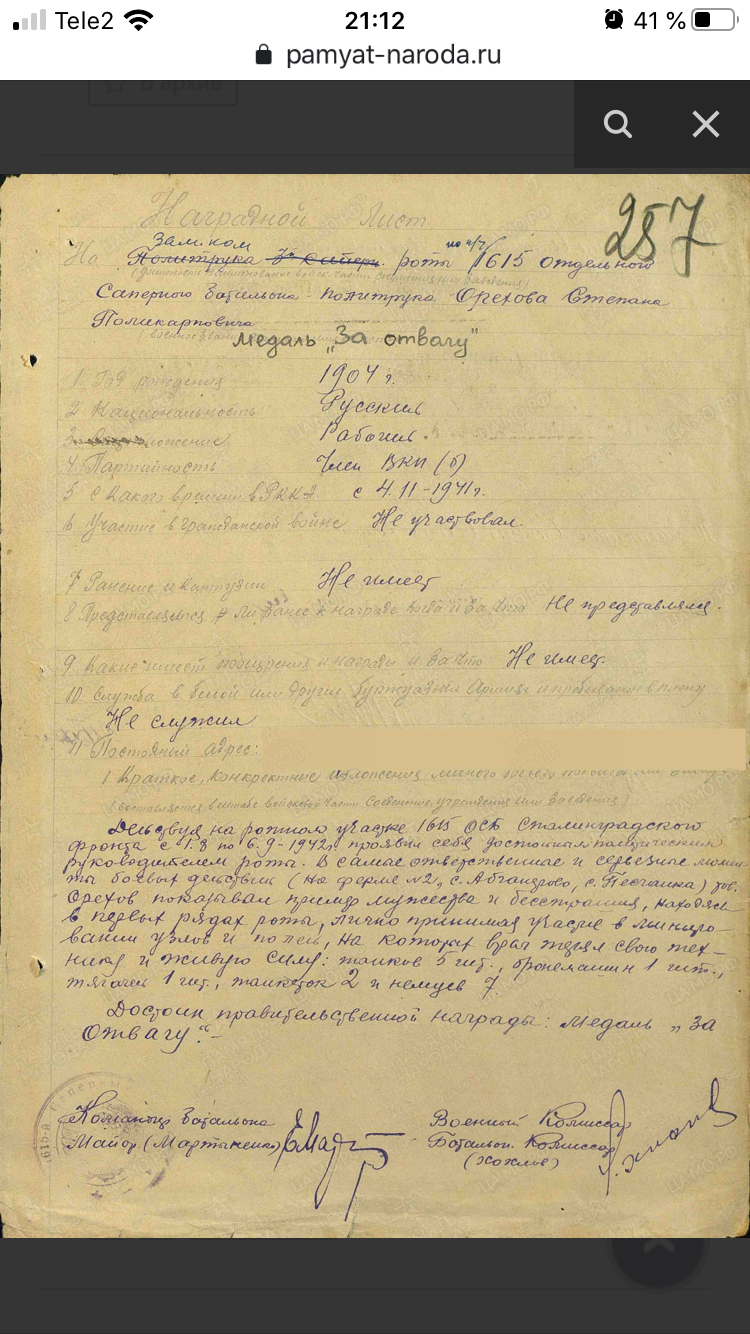 Tele2
21:12
41 %
pamyat-naroda.ru
В архив
257
Наградной лист
Зам. ком по п/ч
На Политрука 3й саперн. роты 1615 отдельного
Саперного Батальона политрука Орехова Степана
Поликарповича
медаль „За отвагу"
1. Год рождения 1904 г.
2 Национальность Русский
3. положение Рабочий.
4 Партийность Член ВКП (б)
5 С какого времени в РККА с 4.11-1941 г.
6 Участие в гражданской войне Не участвовал.
7 Ранение и контузии Не имеет
8 Представлялся ли ранее к награде когда и за что Не представлялся.
9 Какие имеет поощрения и награды и за что Не имеет.
10 Служба в белой или других буржуазных Армиях и пребывание в плену
Не служил
11 Постоянный адрес:
1 Краткое, конкретные изложения личного боевого
(составляется в штабе войсковой части соединения учреждения или заведения)
Действуя на ротном участке 1615 ОСБ Сталинградского
фронта с 1.8 по 6.9-1942г. проявил себя достойным политическим
руководителем роты. В самые ответственные и серьезные момен-
ты боевых действий (на ферме №2, с. Абганерово, с. Песчанка) тов.
Орехов показывал пример мужества и бесстрашия, находясь
в первых рядах роты, лично принимая участие в миниро-
вании узлов и полей, на которых враг терял свою тех-
нику и живую силу: танков 5 шт., бронемашин 1 шт.,
тягачей 1 шт., танкеток 2 и немцев 7.
Достоин правительственной награды: Медаль „За
Отвагу".-
Командир Батальона
Майор (Мартыненко)
Военный Комиссар
Батальон. Комиссар
(Хохлов)